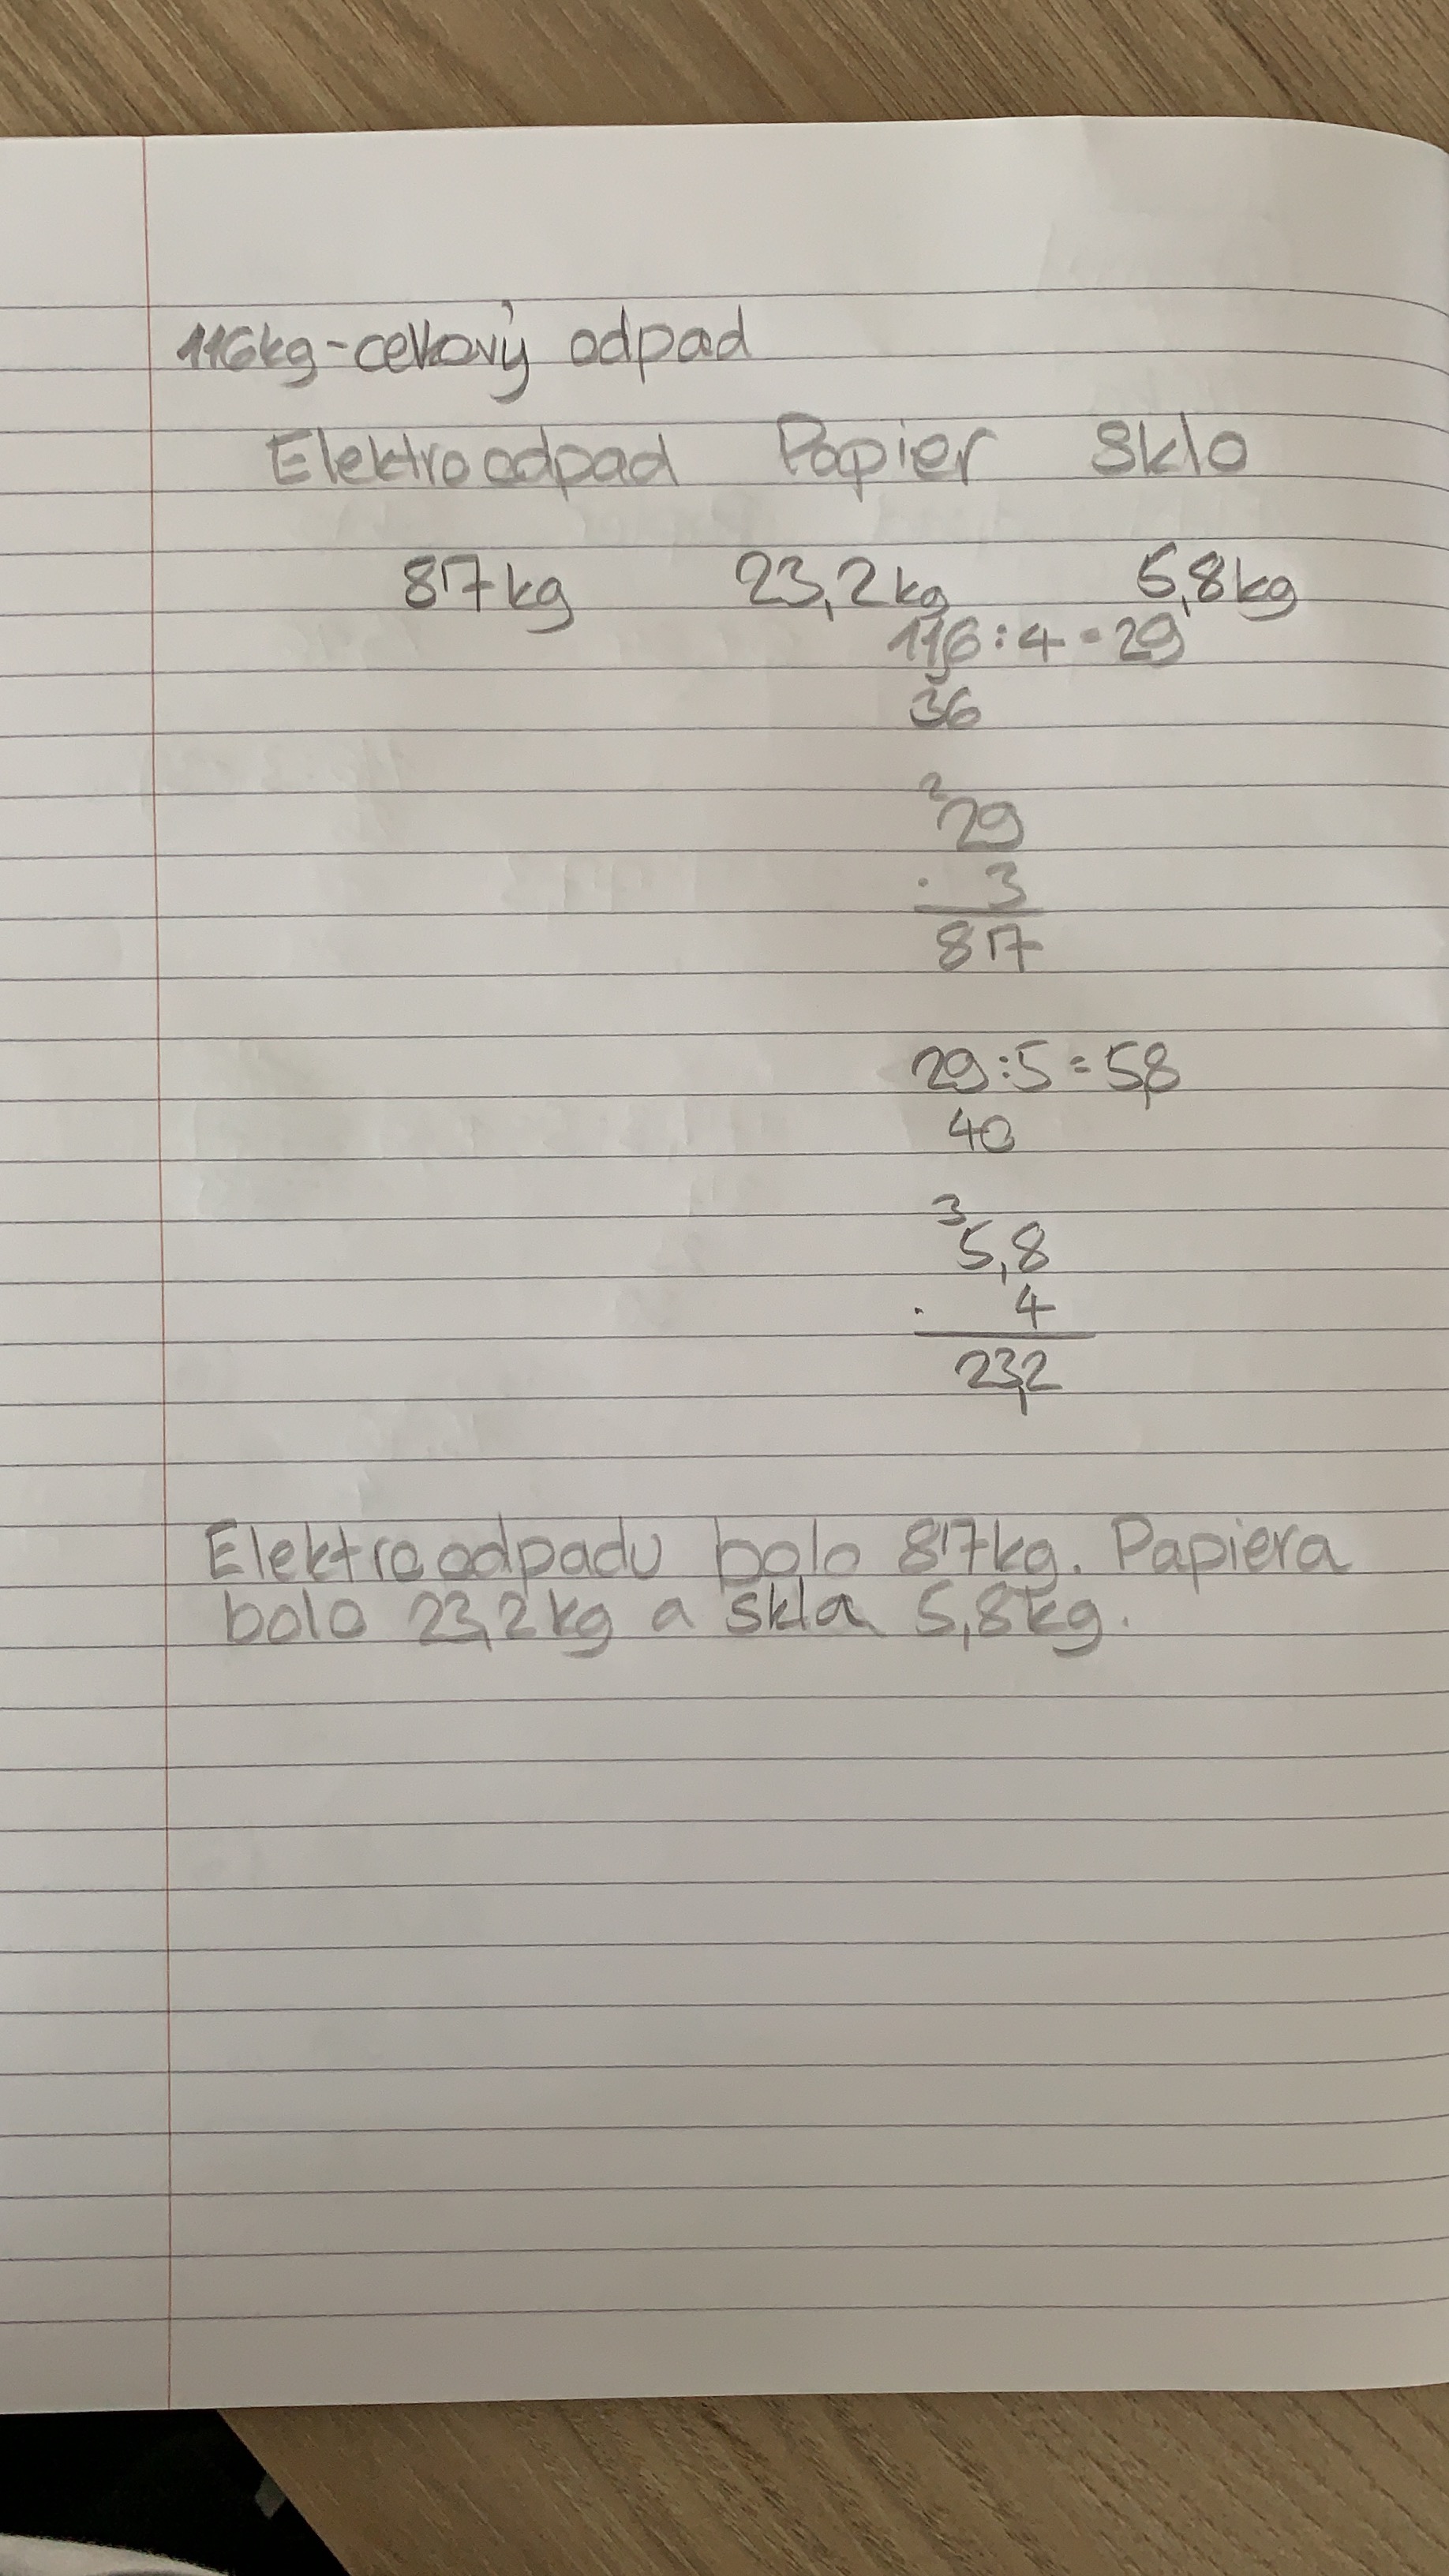 116kg-celkový odpad
Elektroodpad Papier Sklo
87kg 23,2kg 5,8kg
116:4=29
36
2
29
· 3
87
29:5=5,8
40
3
5,8
· 4
23,2
Elektroodpadu bolo 87kg. Papiera
bolo 23,2kg a skla 5,8kg.